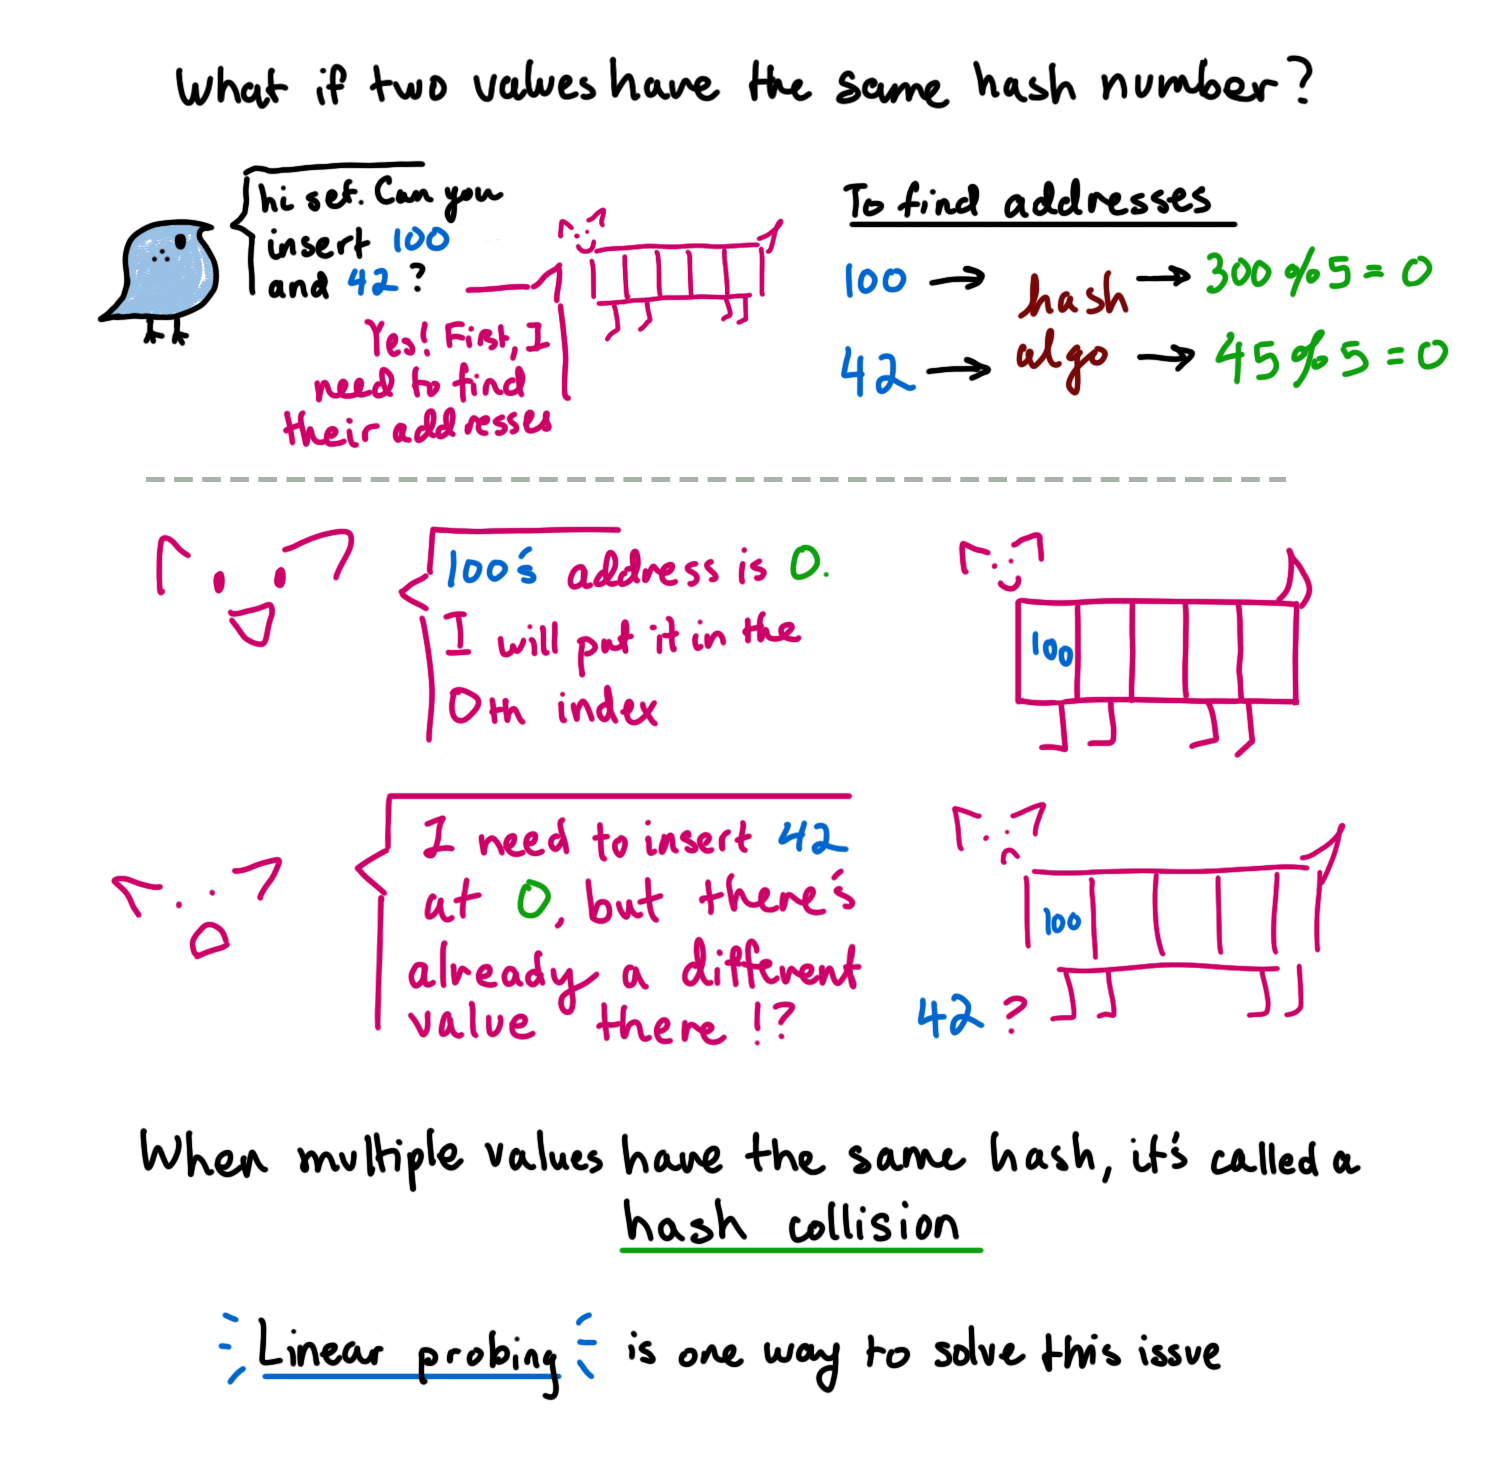 What if two values have the same hash number?
hi set. Can you
insert 100
and 42?
Yes! First, I
need to find
their addresses
To find addresses
100 → hash → 300 % 5 = 0
42 → algo → 45 % 5 = 0
100's address is 0.
I will put it in the
0th index
100
I need to insert 42
at 0, but there's
already a different
value there!?
100
42 ?
When multiple values have the same hash, it's called a
hash collision
Linear probing is one way to solve this issue